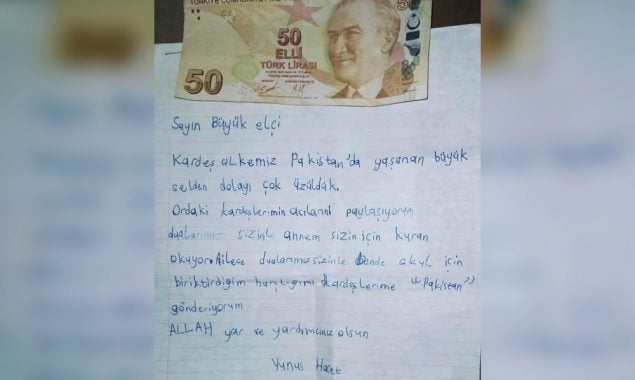 TÜRKİYE CUMHURİYET MERKEZ
50
50
ELLİ
TÜRK LİRASI
50
Sayın Büyük elçi
Kardeş alkemiz Pakistan'da yaşanan büyük
selden dolayı çok üzüldük.
Ordaki kardeşlerimin acılarını paylaşıyorum
dualarımız sizinle annem sizin için kuran
okuyor. Ailece dualarımız sizinle bende okul için
biriktirdiğim harçlığımı kardeşlerime "Pakistan"
gönderiyorum
ALLAH yar ve yardımcınız olsun
Yunus